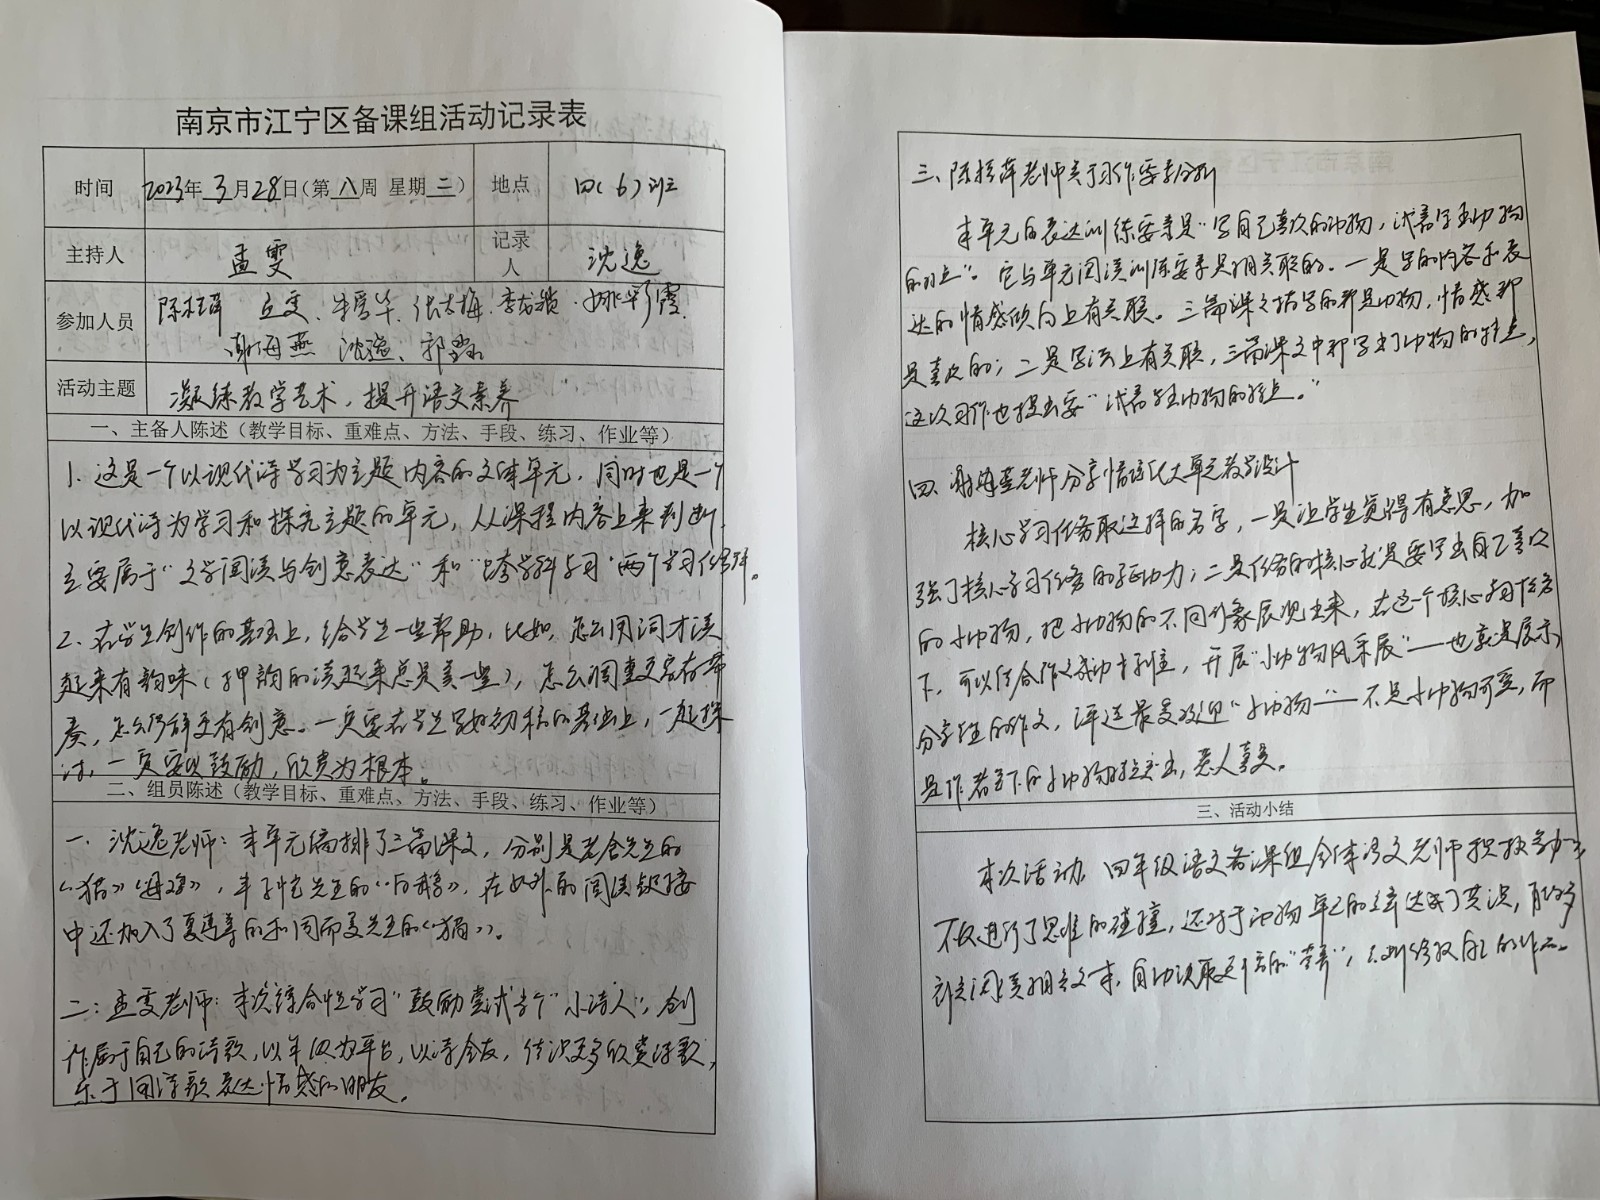 南京市江宁区备课组活动记录表
时间 2023年 3月28日(第八周 星期二) 地点 四(6)班
主持人 孟雯 记录人 沈逸
参加人员 陈桂萍 孟雯、朱爱华、 姚彩霞、
谢海燕 沈逸、郭
活动主题 凝练教学艺术，提升语文素养
一、主备人陈述（教学目标、重难点、方法、手段、练习、作业等）
1. 这是一个以现代诗学习为主题内容的文体单元，同时也是一个
以现代诗为学习和探究主题的单元，从课程内容上来判断，
主要属于“文学阅读与创意表达”和“跨学科学习”两个学习任务群。
2. 在学生创作的基础上，给学生一些帮助，比如，怎么用词才读
起来有韵味（押韵的读起来总是美一些），怎么调整更富有节
奏，怎么修辞更有创意。一定要在学生写好初稿的基础上，一起探
讨，一定要以鼓励，欣赏为根本。
二、组员陈述（教学目标、重难点、方法、手段、练习、作业等）
一、沈逸老师：本单元编排了三篇课文，分别是老舍先生的
《猫》《母鸡》，丰子恺先生的《白鹅》，在此外的阅读链接
中还加入了夏丏尊的和周而复先生的《猫》。
二：孟雯老师：本次综合性学习“鼓励尝试当个“小诗人”，创
作属于自己的诗歌，以年级为平台，以诗会友，结识更多欣赏诗歌，
乐于用诗歌表达情感的朋友。
三、陈桂萍老师关于习作要素分析
本单元的表达训练要素是“写自己喜欢的动物，试着写出动物
的特点”。它与单元阅读训练要素是相关联的。一是写的内容和表
达的情感倾向上有关联。三篇课文描写的都是动物，情感都
是喜欢的；二是写法上有关联，三篇课文中都写出了动物的特点，
这次习作也提出要“试着写出动物的特点。”
四、谢海燕老师分享情境化大单元教学设计
核心学习任务取这样的名字，一是让学生觉得有意思，加
强了核心学习任务的驱动力；二是任务的核心就是要写出自己喜欢
的小动物，把小动物的不同形象展现出来，在这个核心学习任务
下，可以结合作文成功标准，开展“小动物风采展”——也就是展示，
分享学生的作文，评选最受欢迎“小动物”——不是小动物可爱，而
是作者笔下的小动物特点突出，惹人喜爱。
三、活动小结
本次活动，四年级语文备课组全体语文老师积极参加，
不仅进行了思维的碰撞，还对于动物单元的文章达成了共识，
阅读相关文本，自动汲取 的“营养”， 自己的